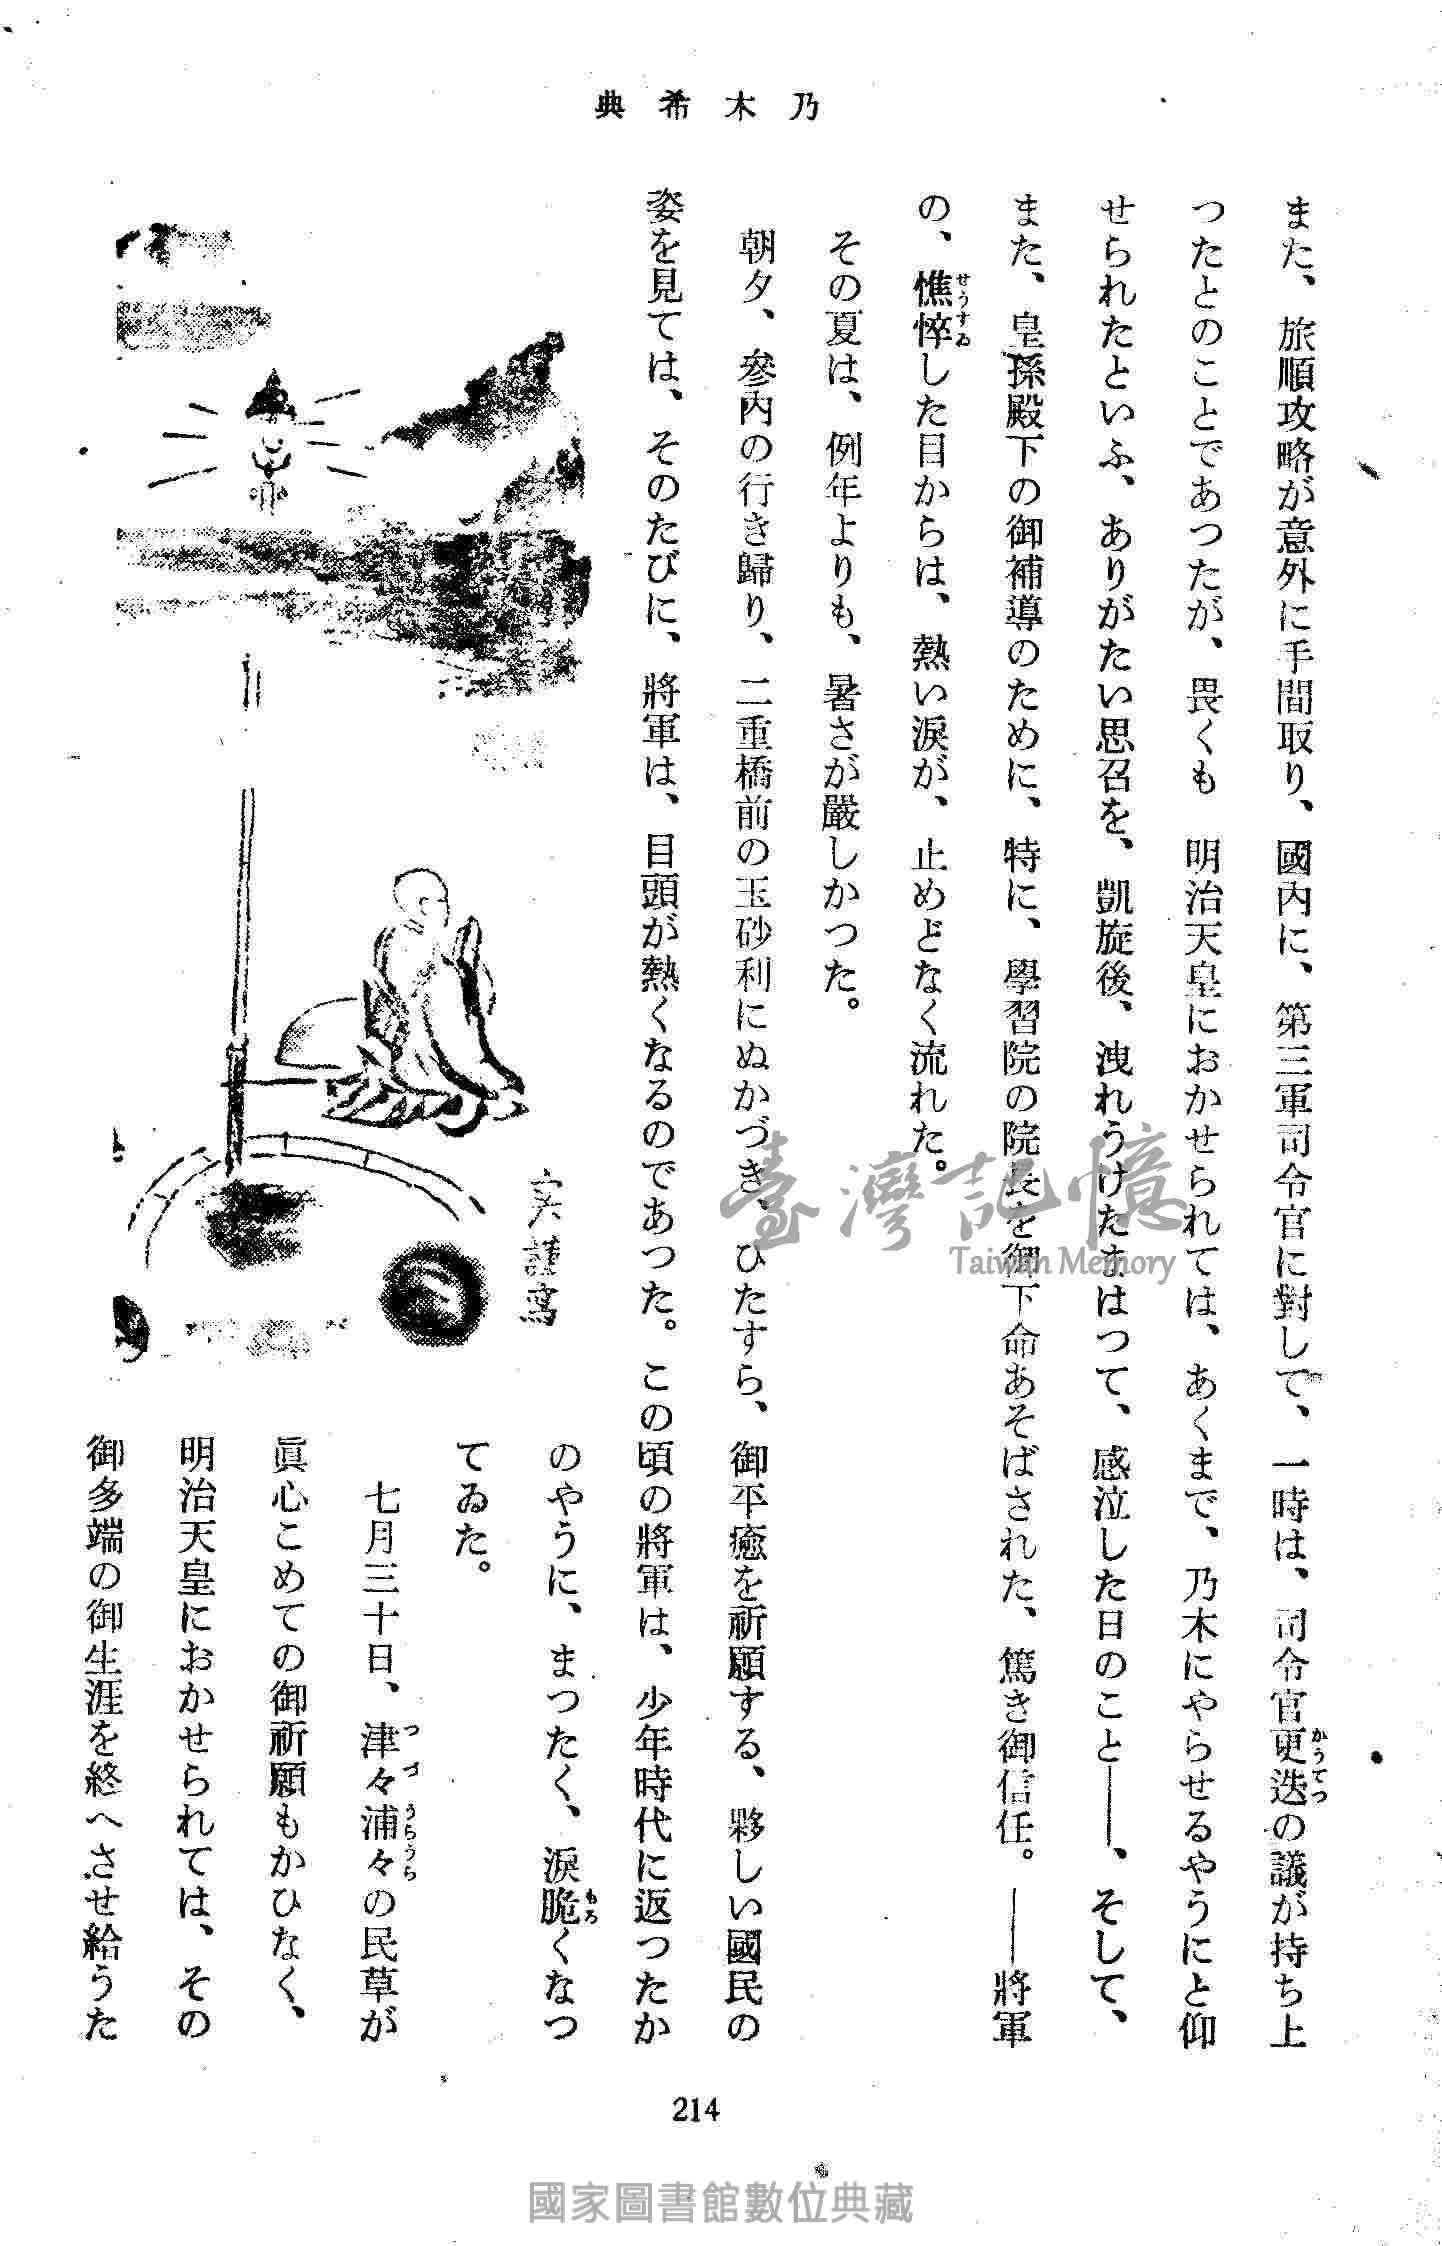 乃木希典
また、旅順攻略が意外に手間取り、國內に、第三軍司令官に對して、一時は、司令官更迭の議が持ち上
かうてつ
つたとのことであつたが、畏くも　明治天皇におかせられては、あくまで、乃木にやらせるやうにと仰
せられたといふ、ありがたい思召を、凱旋後、洩れうけたまはつて、感泣した日のこと――、そして、
また、皇孫殿下の御補導のために、特に、學習院の院長を御下命あそばされた、篤き御信任。――將軍
の、憔悴した目からは、熱い淚が、止めどなく流れた。
せうすゐ
その夏は、例年よりも、暑さが嚴しかつた。
朝夕、參內の行き歸り、二重橋前の玉砂利にぬかづき、ひたすら、御平癒を祈願する、夥しい國民の
姿を見ては、そのたびに、將軍は、目頭が熱くなるのであつた。この頃の將軍は、少年時代に返つたか
のやうに、まつたく、淚脆くなつ
もろ
てゐた。
七月三十日、津々浦々の民草が
つづうらうら
眞心こめての御祈願もかひなく、
明治天皇におかせられては、その
御多端の御生涯を終へさせ給うた
謹寫
214
臺灣記憶
Taiwan Memory
國家圖書館數位典藏